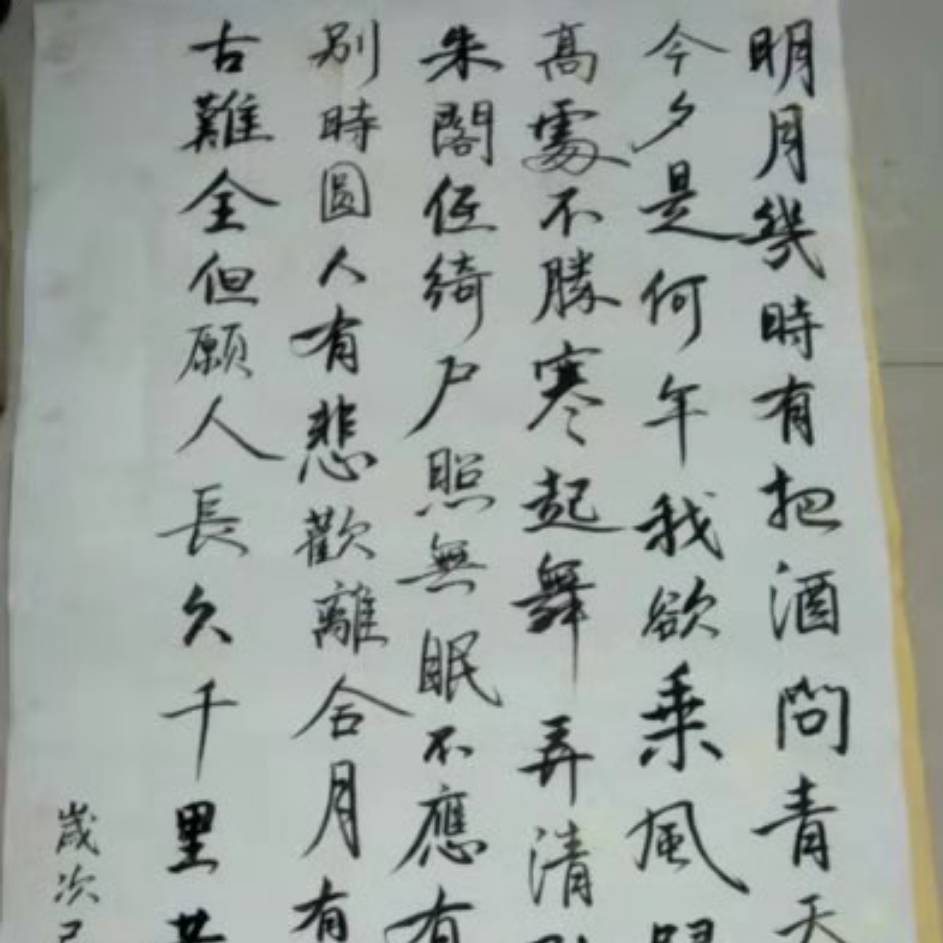 明月幾時有把酒問青天
今夕是何年我欲乘風歸
高處不勝寒起舞弄清
朱閣低綺户照無眠不應有
别時圓人有悲歡離合月有
古難全但願人長久千里共
歲次己